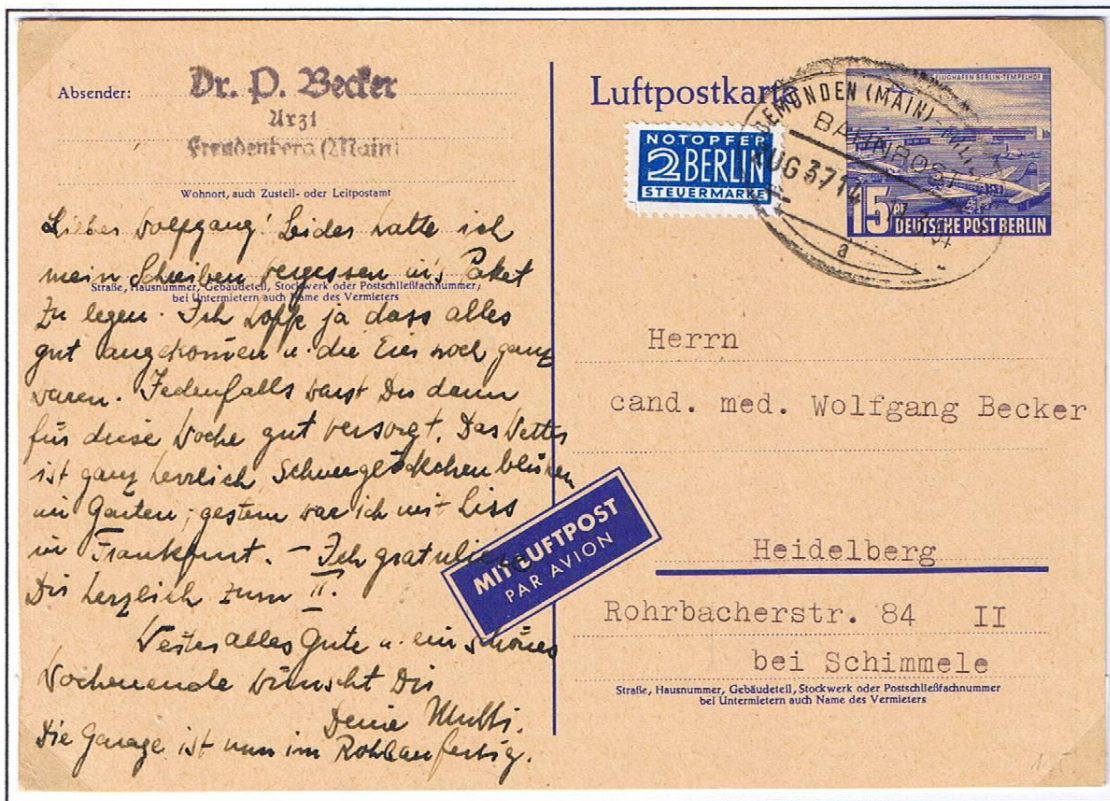 Absender:
Dr. P. Becker
Arzt
Freudenberg (Main)
Wohnort, auch Zustell- oder Leitpostamt
Lieber Wolfgang! Leider hatte ich
mein Schreiben vergessen in's Paket
Straße, Hausnummer, Gebäudeteil, Stockwerk oder Postschließfachnummer;
bei Untermietern auch Name des Vermieters
zu legen. Ich hoffe ja dass alles
gut angekommen u. die Eier noch ganz
waren. Jedenfalls warst Du dann
für diese Woche gut versorgt. Das Wetter
ist ganz herrlich, Schneeglöckchen blühen
im Garten; gestern war ich mit Liss
in Frankfurt. – Ich gratuliere
Dir herzlich zum II.
Weiter alles Gute u. ein schönes
Wochenende wünscht Dir
Deine Mutti.
Die Garage ist nun im Rohbau fertig.
Luftpostkarte
NOTOPFER
2 BERLIN
STEUERMARKE
GEMÜNDEN (MAIN)
BAHNPOST
ZUG 3714
a
FLUGHAFEN BERLIN-TEMPELHOF
15 Pf
DEUTSCHE POST BERLIN
MIT LUFTPOST
PAR AVION
Herrn
cand. med. Wolfgang Becker
Heidelberg
Rohrbacherstr. 84 II
bei Schimmele
Straße, Hausnummer, Gebäudeteil, Stockwerk oder Postschließfachnummer
bei Untermietern auch Name des Vermieters